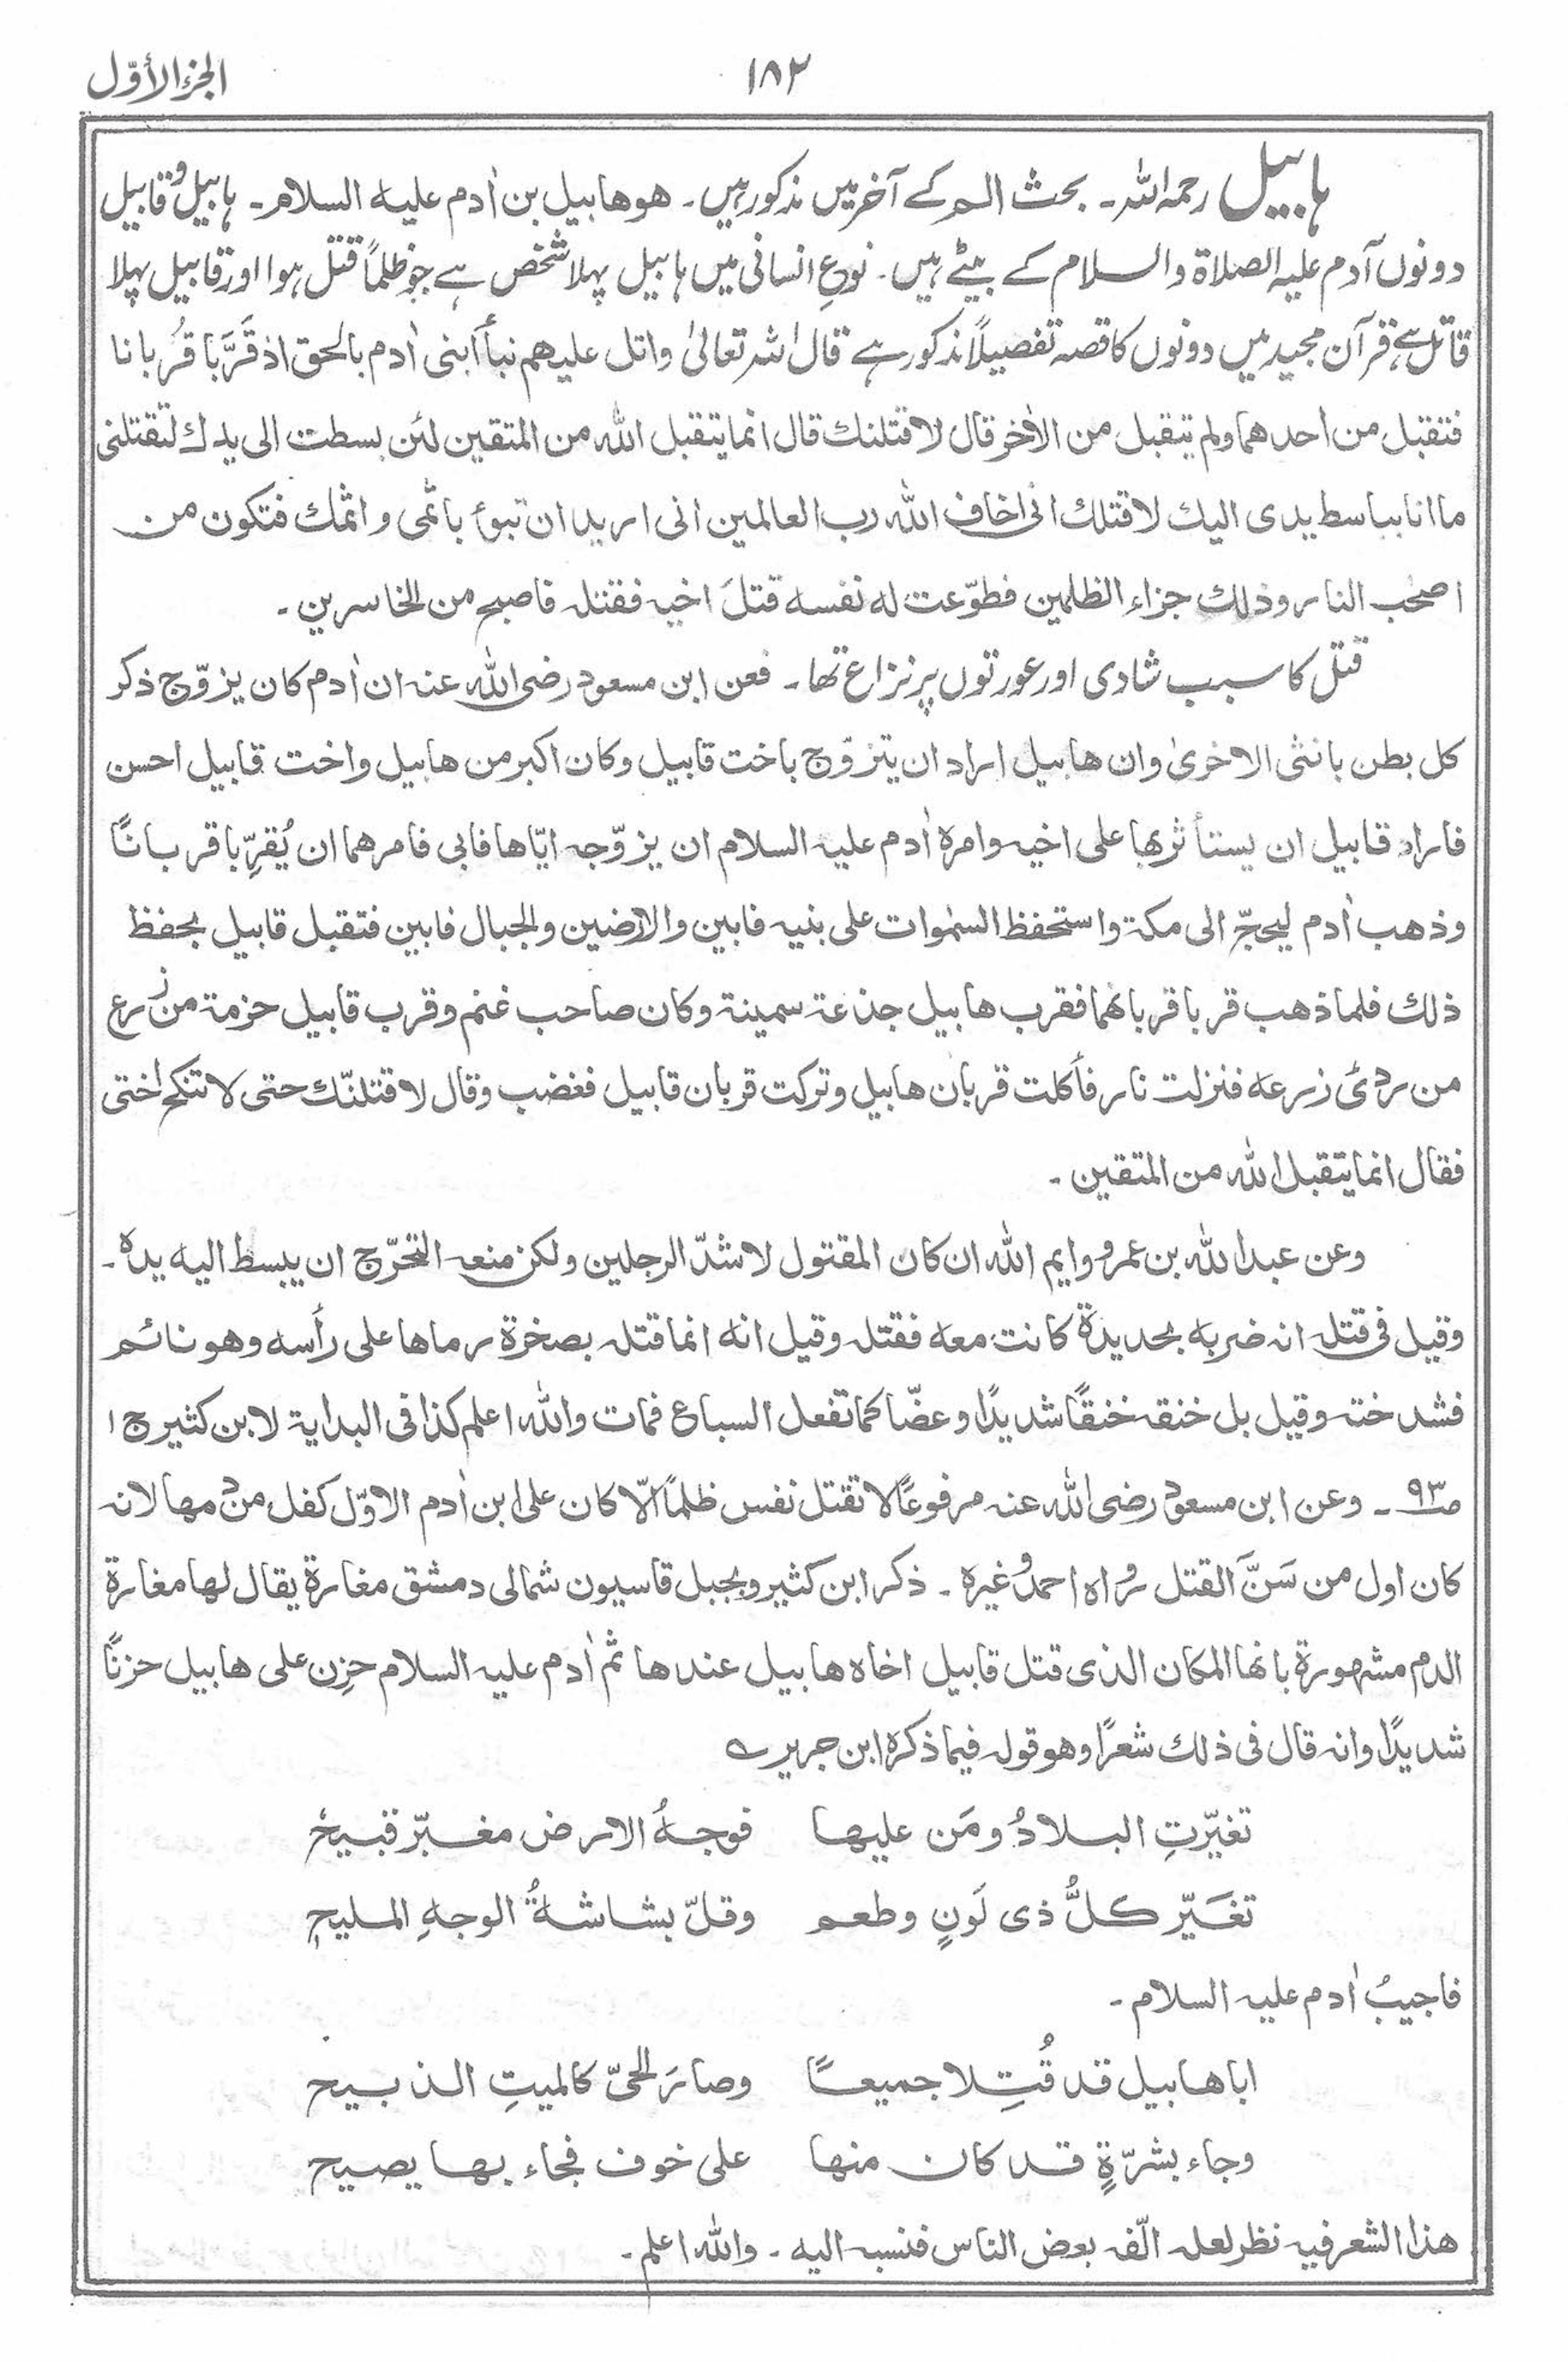 الجزء الأوّل
١٨٢
ہابیل رحمہ اللہ۔ بحث الـم کے آخر میں مذکور ہیں۔ هو هابيل بن اٰدم عليه السلام۔ ہابیل و قابیل
دونوں آدم علیہ الصلاۃ والسلام کے بیٹے ہیں۔ نوعِ انسانی میں ہابیل پہلا شخص ہے جو ظلماً قتل ہوا اور قابیل پہلا
قاتل ہے قرآن مجید میں دونوں کا قصہ تفصیلاً مذکور ہے قال اللہ تعالیٰ واتل عليهم نبأ ابنى اٰدم بالحق اذ قَرَّبا قُربانا
فتقبل من احدهما ولم يتقبل من الاٰخر قال لاقتلنك قال انما يتقبل الله من المتقين لئن بسطت الى يدك لتقتلنى
ما انا بباسط يدى اليك لاقتلك انى اخاف الله رب العالمين انى اريد ان تبوأ باثمى واثمك فتكون من
اصحٰب النار وذٰلك جزاء الظلمين فطوّعت له نفسه قتلَ اخيه فقتله فاصبح من الخاسرين۔
قتل کا سبب شادی اور عورتوں پر نزاع تھا۔ فعن ابن مسعود رضى الله عنه ان اٰدم كان يزوّج ذكر
كل بطن بانثى الاخرىٰ وان هابيل اراد ان يتزوّج باخت قابيل وكان اكبر من هابيل واخت قابيل احسن
فاراد قابيل ان يستأثر بها على اخيه وامره اٰدم عليه السلام ان يزوّجه ايّاها فابى فامرهما ان يُقرِّبا قربانًا
وذهب اٰدم ليحجّ الى مكة واستحفظ السمٰوات على بنيه فابين والارضين والجبال فابين فتقبل قابيل بحفظ
ذٰلك فلما ذهب قربا قربانهما فقرب هابيل جذعة سمينة وكان صاحب غنم وقرب قابيل حزمة من زرع
من ردئ زرعه فنزلت نار فأكلت قربان هابيل وتركت قربان قابيل فغضب وقال لاقتلنّك حتى لا تنكح اختى
فقال انما يتقبل الله من المتقين۔
وعن عبد الله بن عمرو وايم الله ان كان المقتول لاشدّ الرجلين ولكن منعه التحرّج ان يبسط اليه يده۔
وقيل فى قتله انه ضربه بحديدة كانت معه فقتله وقيل انه انما قتله بصخرة رماها على رأسه وهو نائم
فشدخته وقيل بل خنقه خنقًا شديدًا وعضّا كما تفعل السباع فمات والله اعلم كذا فى البداية لابن كثير ج ا
ص٩٣۔ وعن ابن مسعود رضى الله عنه مرفوعًا لا تقتل نفس ظلمًا الّا كان على ابن اٰدم الاوّل كفل من دمها لانه
كان اول من سَنَّ القتل رواه احمد وغيره۔ ذكر ابن كثير وبجبل قاسيون شمالى دمشق مغارة يقال لها مغارة
الدم مشهورة بانها المكان الذى قتل قابيل اخاه هابيل عندها ثم اٰدم عليه السلام حزِن على هابيل حزنًا
شديدًا وانه قال فى ذلك شعرًا وهو قوله فيما ذكره ابن جرير ؎
تغيّرتِ البلادُ ومَن عليها فوجهُ الارض مغبرّ قبيحُ
تغَيّر كلُّ ذى لَونٍ وطعم وقلّ بشاشةُ الوجهِ المليحِ
فاجيبُ اٰدم عليه السلام۔
ابا هابيل قد قُتِلا جميعًا وصارَ الحىّ كالميتِ الذبيح
وجاء بشرّةٍ قد كان منها على خوف فجاء بها يصيح
هذا الشعر فيه نظر لعله الّفه بعض الناس فنسبه اليه۔ والله اعلم۔